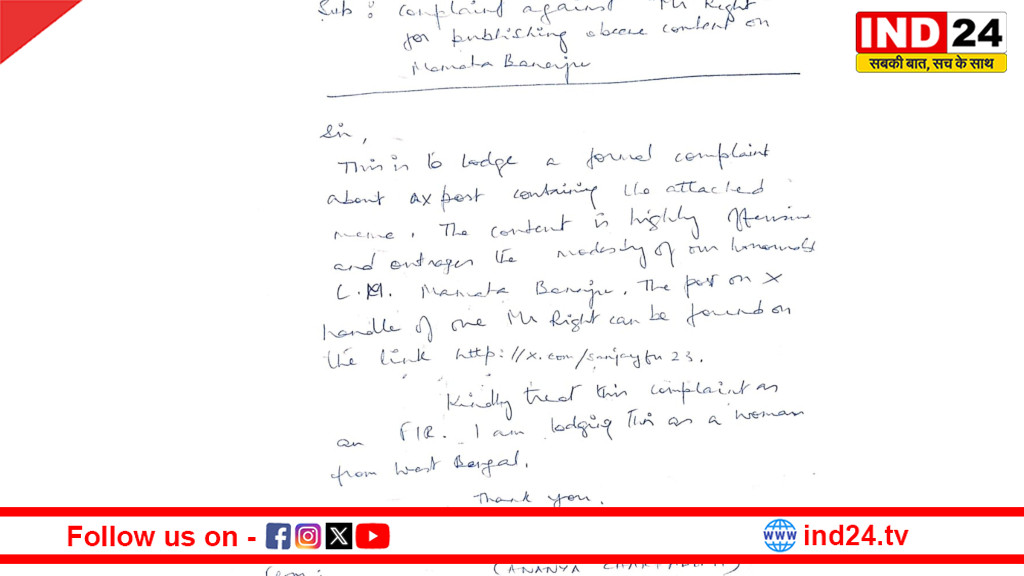 Sub : complaint against Mr Right
for publishing obscene content on
Mamata Banerjee
IND 24
सबकी बात, सच के साथ
Sir,
This is to lodge a formal complaint
about a x post containing the attached
meme. The content is highly offensive
and outrages the modesty of our honourable
C.M. Mamata Banerjee. The post on X
handle of one Mr Right can be found on
the link http://x.com/sanjayfu23.
Kindly treat this complaint as
an FIR. I am lodging this as a woman
from West Bengal.
Thank you.
Follow us on -
www
ind24.tv
(ANANYA